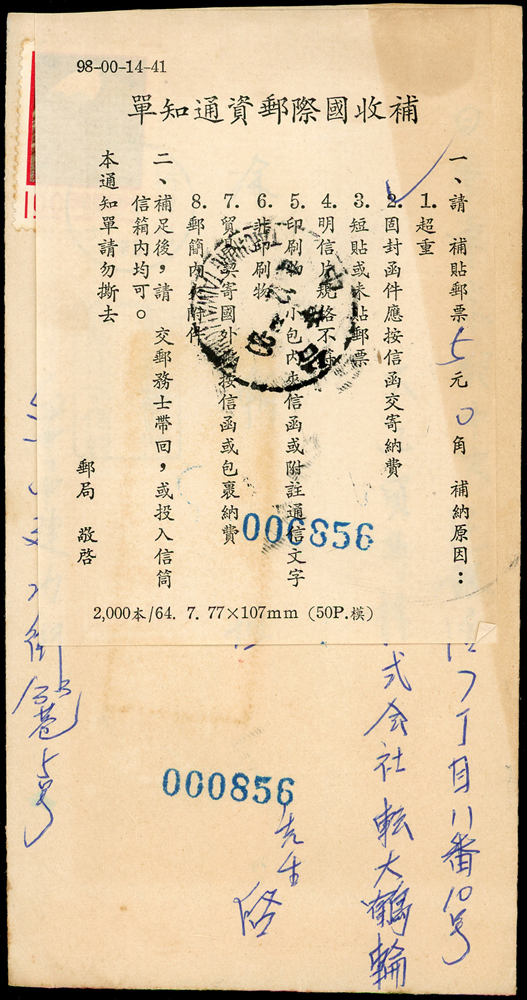 98-00-14-41
補收國際郵資通知單
一、請 補貼郵票5元0角 補納原因：
1.超重
2.固封函件應按信函交寄納費
3.短貼或未貼郵票
4.明信片規格不
5.印刷 小包內夾信函或附註通信文字
6.非印刷物
7.貿 契寄國外 按信函或包裹納費
8.郵簡內 附件
二、補足後，請 交郵務士帶回，或投入信筒
信箱內均可。
本通知單請勿撕去
郵局 敬啓
006856
2,000本/64. 7. 77×107mm (50P.模)
000856
7丁目11番10号
式会社 転大鶴輪
先生
啓
街
巷5号